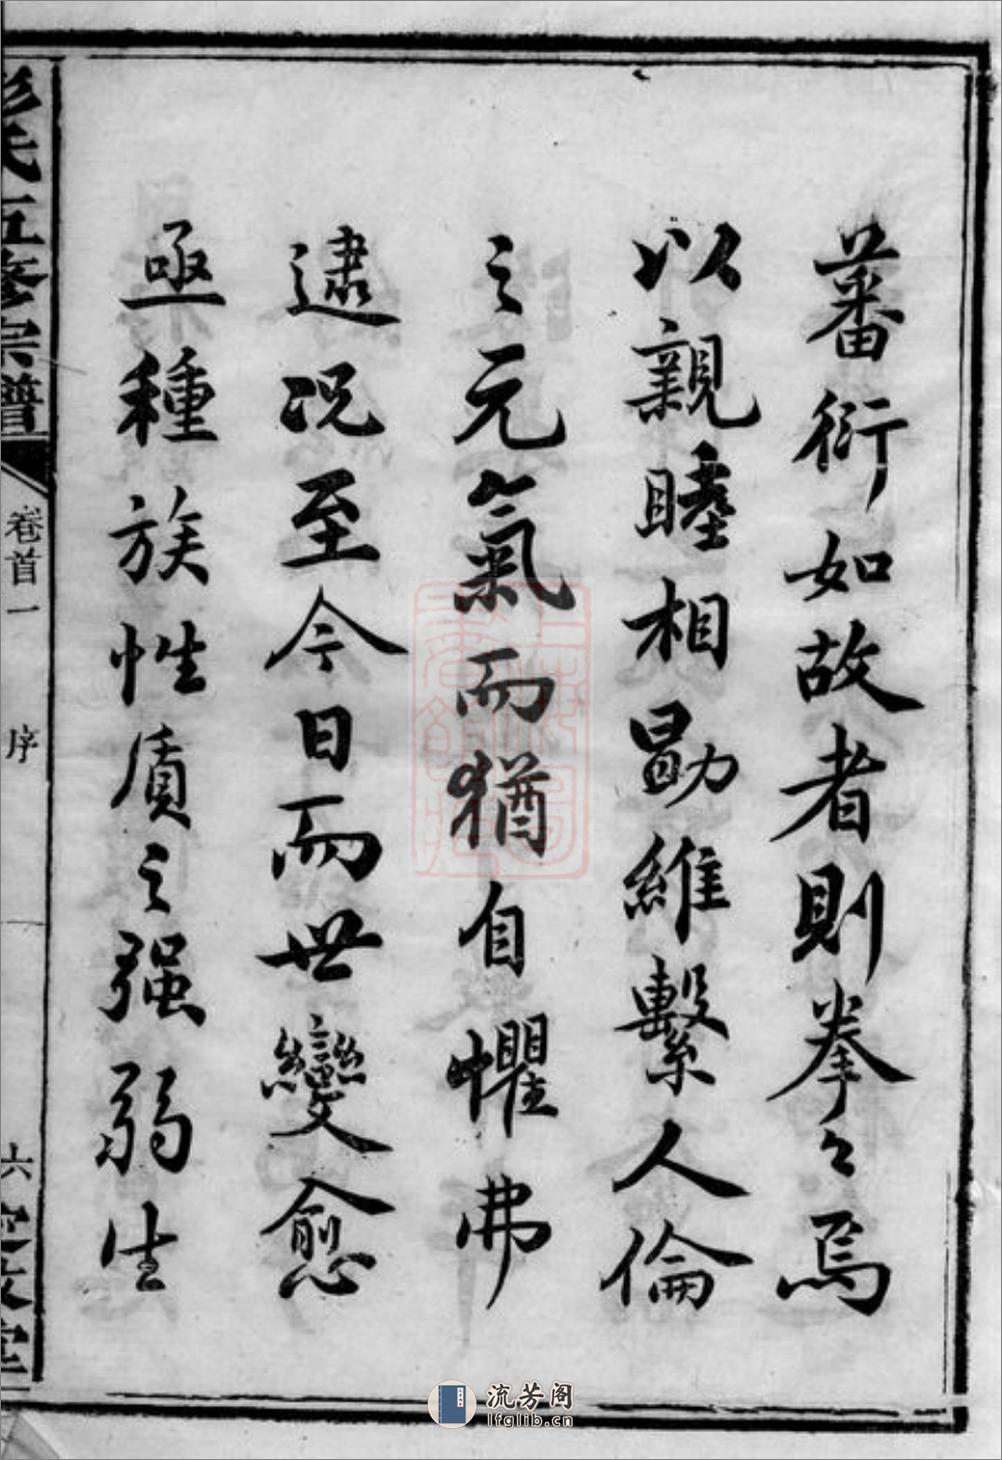 蕃衍如故者則拳々焉
以親睦相勖維繫人倫
之元氣而猶自懼弗
逮况至今日而世變愈
亟種族性質之强弱生
彭氏五修宗譜
卷首一
序
六
流芳阁
lfglib.cn